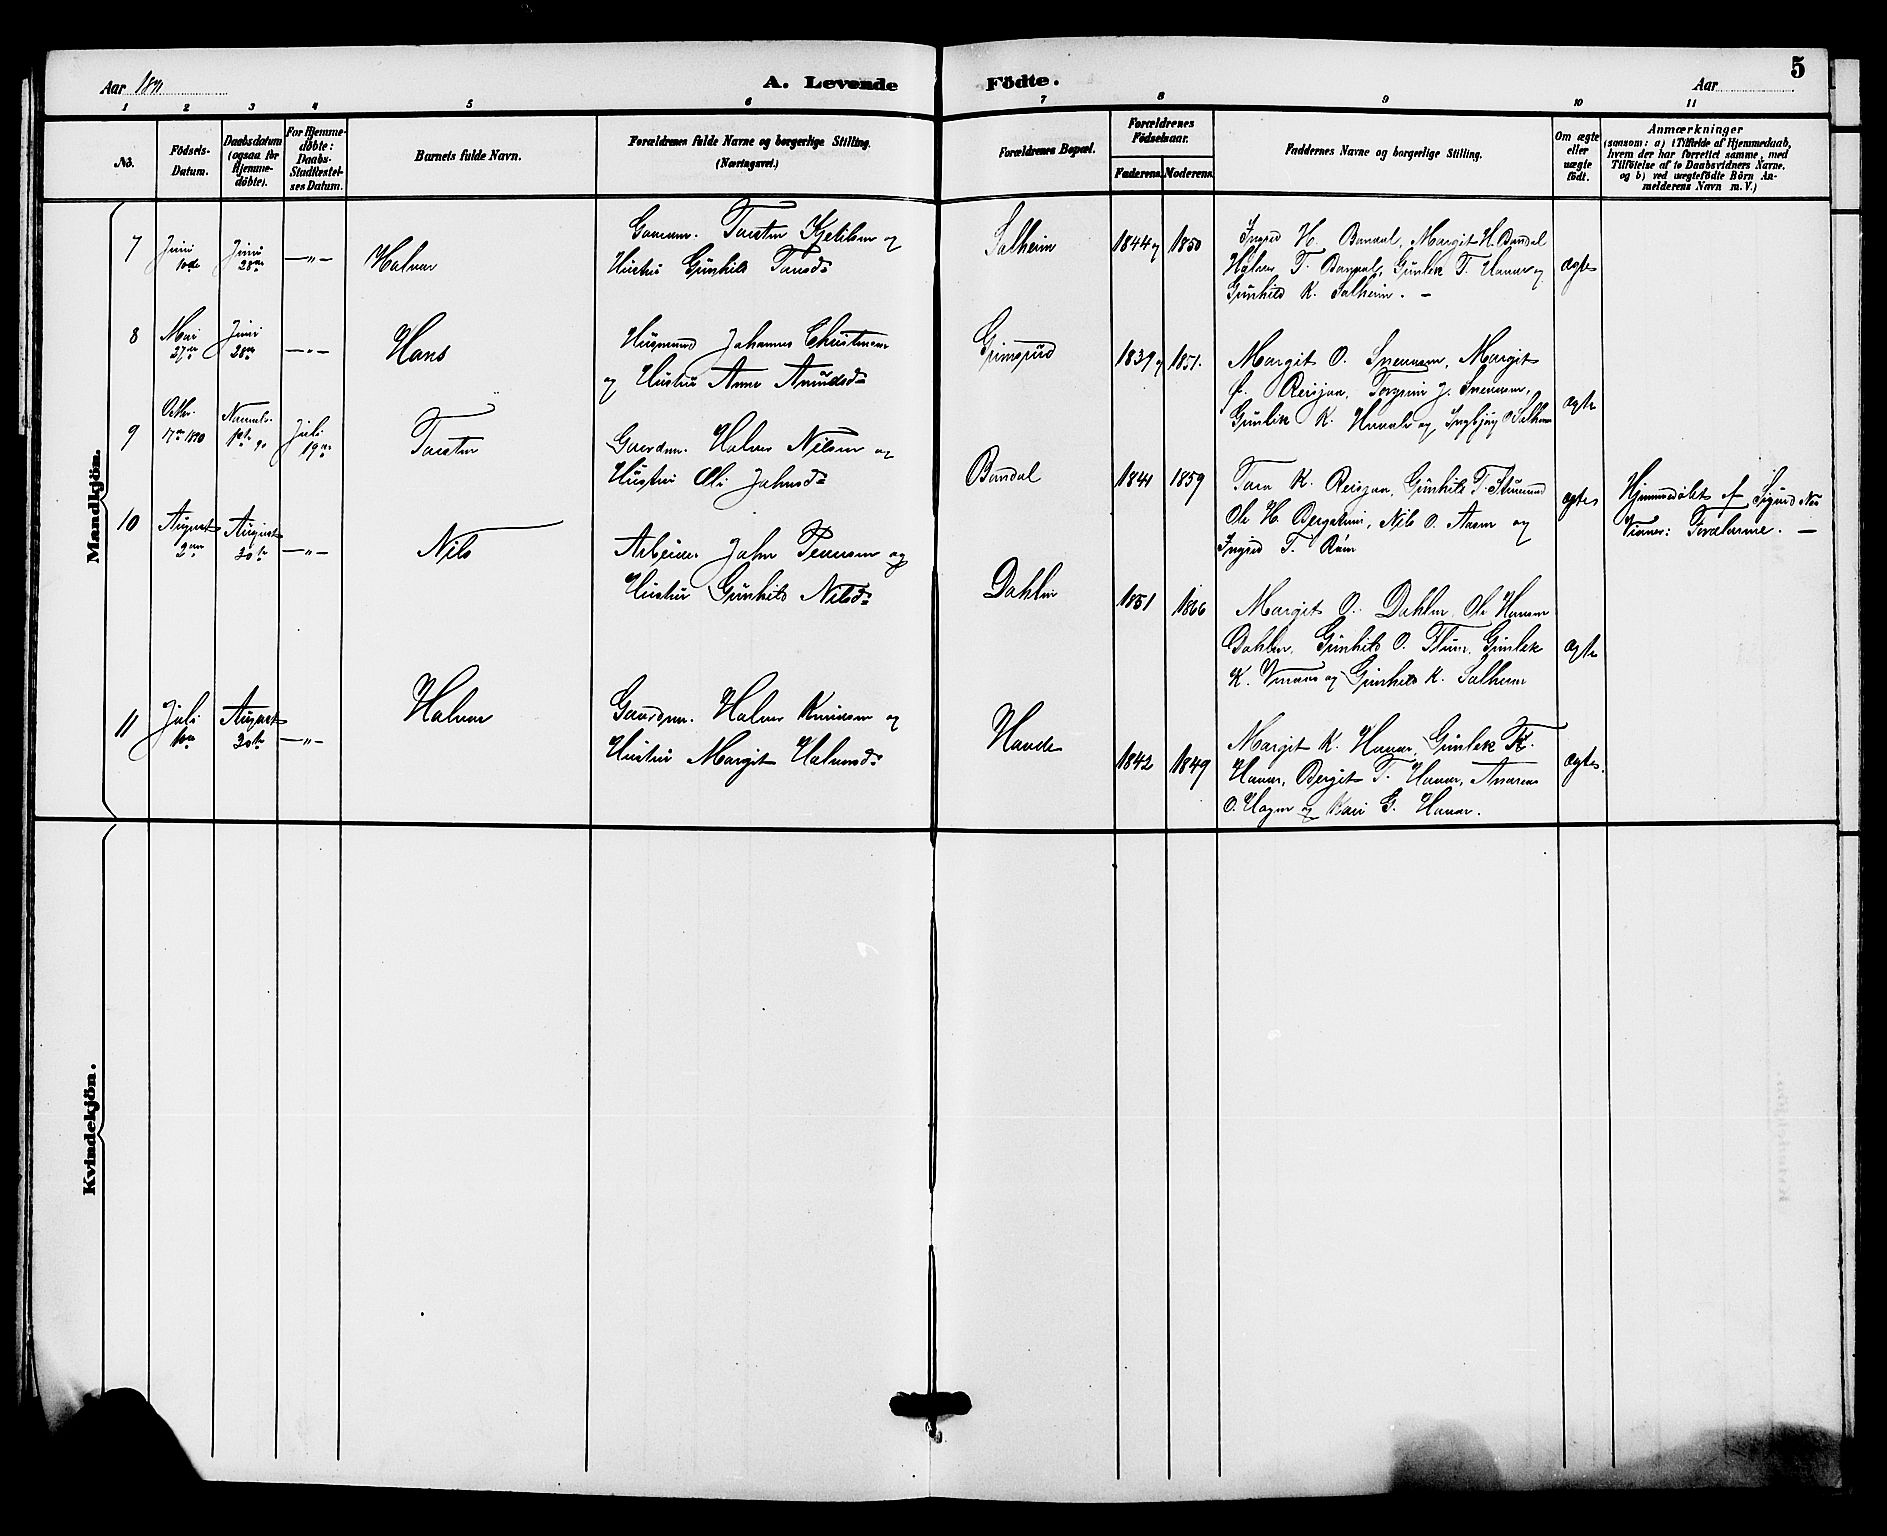 5
Aar 1891
A. Levende Födte.
Aar
1 2 3 4 5 6 7 8 9 10 11
No.
Födsels-
Datum.
Daabsdatum
(ogsaa for
Hjemme-
döbte).
For Hjemme-
döbte:
Daabs-
Stadfæstel-
ses Datum.
Barnets fulde Navn.
Forældrenes fulde Navne og borgerlige Stilling.
(Næringsvei.)
Forældrenes Bopæl.
Forældrenes
Födselsaar.
Faderens. Moderens.
Faddernes Navne og borgerlige Stilling.
Om ægte
eller
uægte
födt.
Anmærkninger
(saasom: a) i Tilfælde af Hjemmedaab,
hvem der har forrettet samme, med
Tilföielse af to Daabsvidners Navne.
og b) ved uægtefödte Börn An-
melderens Navn m. V.)
Mandkjön.
7
Juni
10de
Juni
28de
—„—
Halvor
Gaardm. Torsten Kjetilsen og
Hustru Gunhild Torsd.
Solheim
1844 og 1850
Ingrid H. Bondal, Margit H. Bondal
Halvor T. Bondal, Gunlek T. Hovar og
Gunhild K. Solheim. —
ægte
8
Mai
27de
Juni
28de
—„—
Hans
Husmand Johannes Christensen
og Hustru Anne Amundsd.
Grimsrud
1839 og 1851.
Margit O.
Reisjaa, Torgrim J.
Gunlek K. og Ingebjørg O Solheim
ægte
9
Octbr.
17de 1890
Novemb.
1ste 90
Juli
19de
Torsten
Gaardm. Halvor Nilsen og
Hustru Oli Johnsd.
Bondal
1844 1859
Tora K. Reisjaa, Gunhild T.
Ole H. Bergeim, Nils O. og
Ingrid T.
ægte
Hjemmedøbt af Sigurd
Vidner: Forældrene. —
10
August
2den
August
30te
—„—
Nils
Arbeider John og
Hustru Gunhild Nilsd.
Dahlen
1851 1866
Margit O. Dahlen, Ole Hansen
Dahlen, Gunhild O. Gunlek
K. og Gunhild K. Solheim
ægte
11
Juli
10de
August
30te
—„—
Halvor
Gaardm. Halvor Knudsen og
Hustru Margit Halvorsd.
1842 1849
Margit K. Hovar, Gunlek K.
Hovar, Bergit T. Hovar, Andreas
O. Hagen og Kari G. Hovar.
ægte.
Kvindekjön.